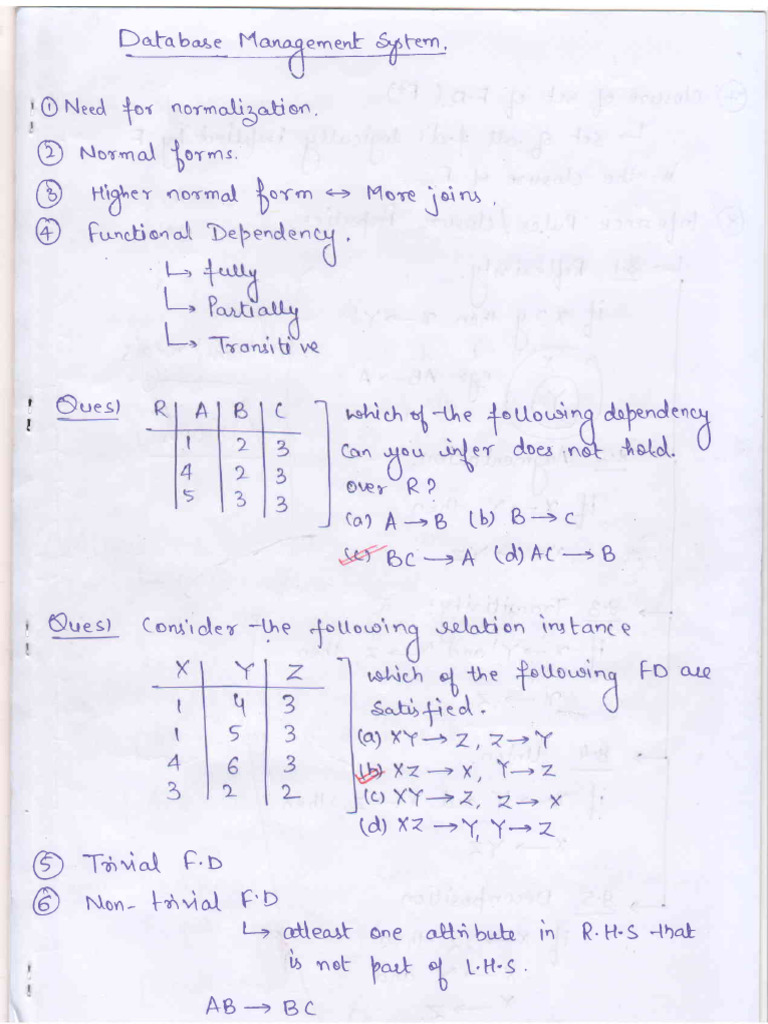 Database Management System.
① Need for normalization.
② Normal forms.
③ Higher normal form ↔ More joins.
④ Functional Dependency.
↳ fully
↳ Partially
↳ Transitive
Ques) R A B C which of the following dependency
1 2 3 can you infer does not hold.
4 2 3 over R?
5 3 3 (a) A → B (b) B → C
(c) BC → A (d) AC → B
Ques) Consider the following relation instance
X Y Z which of the following FD are
1 4 3 satisfied.
1 5 3 (a) XY → Z, Z → Y
4 6 3 (b) XZ → X, Y → Z
3 2 2 (c) XY → Z, Z → X
(d) XZ → Y, Y → Z
⑤ Trivial F.D
⑥ Non-trivial F.D
↳ atleast one attribute in R.H.S that
is not part of L.H.S.
AB → BC